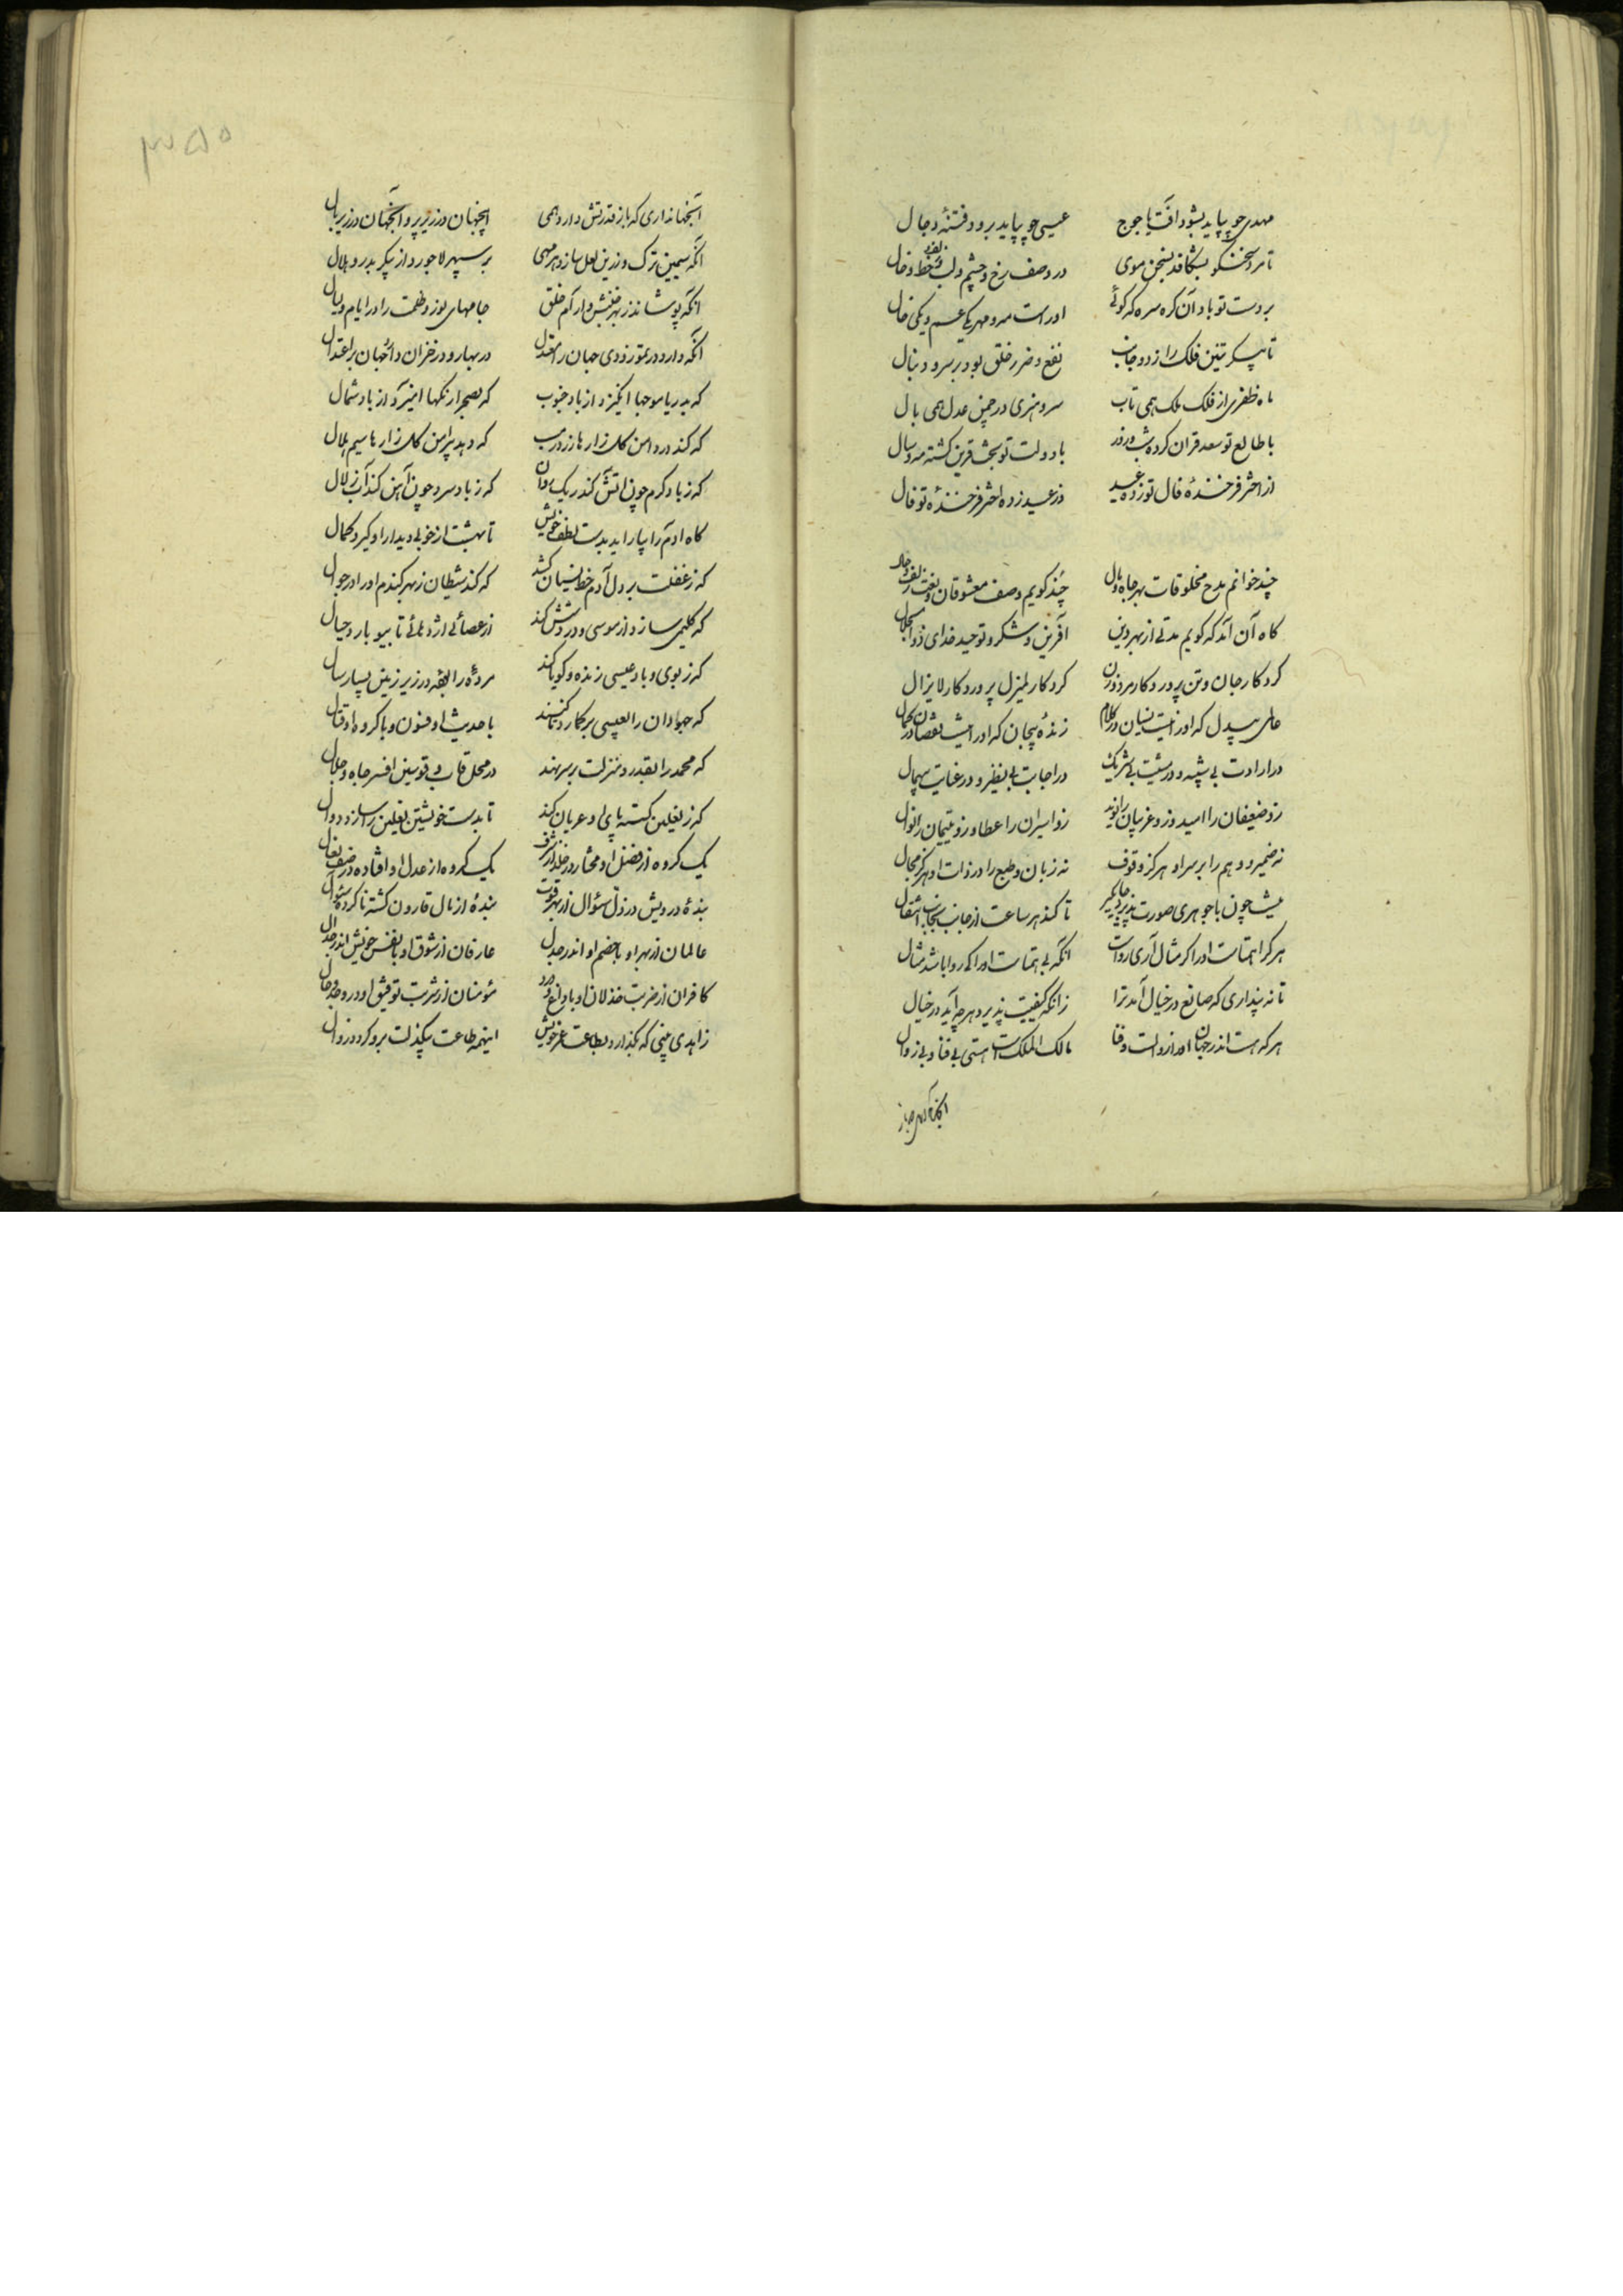 مهدی چو بپاید بشود آفت یاجوج عیسی چو بپاید برود فتنهٔ دجال
تا مرد سخنگو بشکافد بسخن موی در وصف رخ و چشم و لب و زلف و خط و خال
بر دست تو باد آن کره سره که گوئی او راست مه و مهر یکی عم و یکی خال
تا پیکر تنین فلک را ز دو جانب نفع و ضرر خلق بود بر سر و دنبال
ماه ظفری از فلک ملک همی تاب سرو هنری در چمن عدل همی بال
با طالع تو سعد قران کرده شب و روز با دولت تو بخت قرین گشته مه و سال
از اختر فرخندهٔ فال تو زده عید وز عید زده اختر فرخندهٔ تو فال
چند خوانم مدح مخلوقات بهر جاه و مال چند گویم وصف معشوقان و نعت زلف و خال
گاه آن آمد که گویم مدتی از بهر دین آفرین و شکر و توحید خدای ذوالجلال
کردگار جان و تن پروردگار مرد و زن کردگار لم یزل پروردگار لایزال
عالمی بیدل که او را نیست نسیان در کلام زندهٔ بیجان که او را نیست نقصان در کمال
در ارادت بی شبیه و در مشیت بی شریک در اجابت بی نظیر و در عنایت بیهمال
زو ضعیفان را امید و زو غریبان را نوید زو اسیران را عطا و زو یتیمان را نوال
نه ضمیر و وهم را بر سر او هرگز وقوف نه زبان و طبع را در ذات او هرگز مجال
نیست چون با جوهری صورت پذیر و جایگیر تا کند هر ساعت از جانب بجانب انتقال
هر کرا همتاست او را گر مثال آری رواست آنکه بی همتاست او را کی روا باشد مثال
تا نه پنداری که صانع در خیال آمد ترا زانکه کیفیت پذیرد هر چه آید در خیال
هر که هست اندر جهان او را زوالست و فنا مالک الملک است هستی بی فنا و بی زوال
آنجهانداری که باز قدرتش دارد همی اینجهان در زیر پر و آنجهان در زیر بال
آنکه سیمین ترک و زرین نعل سازد هر مهی بر سپهر لاجورد از پیکر بدر و هلال
آنکه پوشاند ز بهر جنبش و آرام خلق جامهای نور و ظلمت را در ایام و لیال
آنکه دارد در تموز و دی جهان را معتدل در بهار و در خزان دائم جهان بر اعتدال
که بدریا موجها انگیزد از باد جنوب که بصحرا رنگها آمیزد از باد شمال
که کند در دامن گلزارها زر درست که دهد پیرامن گلزارها سیم هلال
که ز باد گرم چون آتش کند ریک روان که ز باد سرد چون آهن کند آب زلال
گاه آدم را بیاراید بدست لطف خویش تا بهشت از خوبی دیدار او گیرد کمال
که ز غفلت بر دل آدم خط نسیان کشد که کند شیطان ز بهر گندم او را در جوال
که کلیمی سازد از موسی و در دستش کند از عصائی اژدهائی تا بیوبارد حبال
که ز بوی و باد عیسی زنده و گویا کند مردهٔ را بقعه در زیر زمین بسیار سال
که جهودان را بعیسی برگمارد تا کنند با حدیث او فسون و با گروه او قتال
که محمد را بقدر و منزلت بر سر نهد در محل قاب و قوسین افسر جاه و جلال
که ز نعلین گسسته پای او عریان کند تا بدست خویشتن نعلین را سازد دوال
یک گروه از فضل او مختار در خلد از شرف یک گروه از عدل او افتاده در صف نعال
بندهٔ درویش در ذل سؤال از بهر قوت بندهٔ از مال قارون گشته ناکرده سؤال
عالمان از بهر او با خصم او اندر جدل عارفان از شوق او با نفس خویش اندر جدال
کافران از ضربت خذلان او با داغ و درد مؤمنان از شربت توفیق او در وجد و حال
زاهدی بینی که بگذارد بطاعت عمر خویش اینهمه طاعت بیکذلت برو گردد زوال